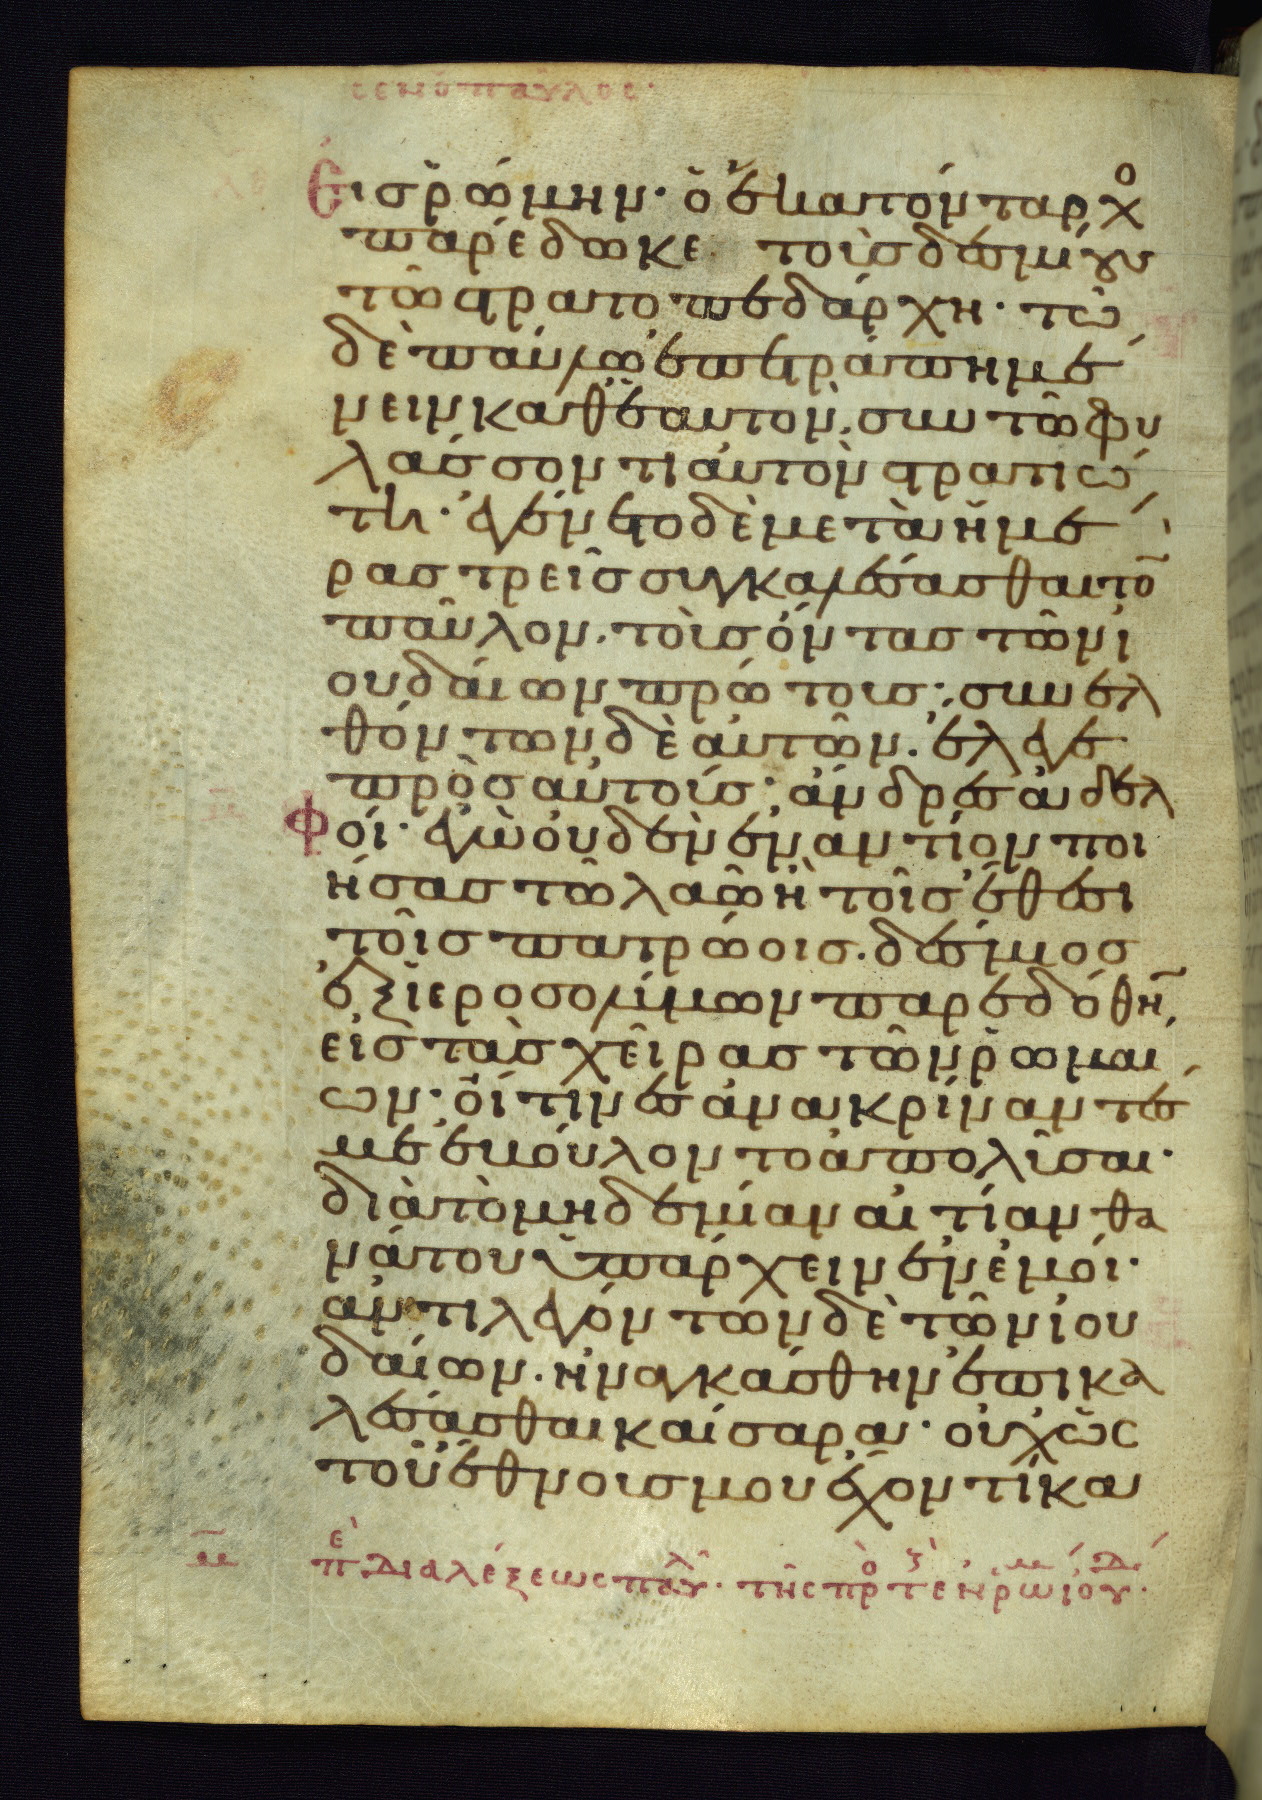 εἰς ῥώμην· ὁ ἑκατόνταρχο
παρέδωκε τοὺς δεσμίους
τῶ στρατοπεδάρχη· τῶ
δὲ παύλω ἐπετράπη μέ
νειν καθ ἑαυτὸν, σὺν τῶ φυ
λάσσοντι αὐτὸν στρατιώ
τη· ἐγένετο δὲ μετὰ ἡμέ
ρας τρεῖς συγκαλέσασθαι τὸ
παῦλον, τοὺς ὄντας τῶν ἰ
ουδαίων πρώτους· συνελ
θόντων δὲ αὐτῶν, ἔλεγε
πρὸς αὐτούς· ἄνδρες ἀδελ
φοί· ἐγὼ οὐδὲν ἐναντίον ποι
ήσας τῶ λαῶ ἢ τοῖς ἔθεσι
τοῖς πατρώοις. δέσμιος
ἐξ ἱεροσολύμων παρεδόθη
εἰς τὰς χεῖρας τῶν ῥωμαί
ων· οἵτινες ἀνακρίναντές
με ἐβούλοντο ἀπολῦσαι·
διὰ τὸ μηδεμίαν αἰτίαν θα
νάτου ὑπάρχειν ἐν ἐμοί·
ἀντιλεγόντων δὲ τῶν ἰου
δαίων. ἠναγκάσθην ἐπικα
λέσασθαι καίσαρα· οὐχ ὡς
τοῦ ἔθνους μου ἔχοντί κα
μ πε διαλέξεως παυλ· τῆς προ τ ἐν ρωμ ἰουδ·